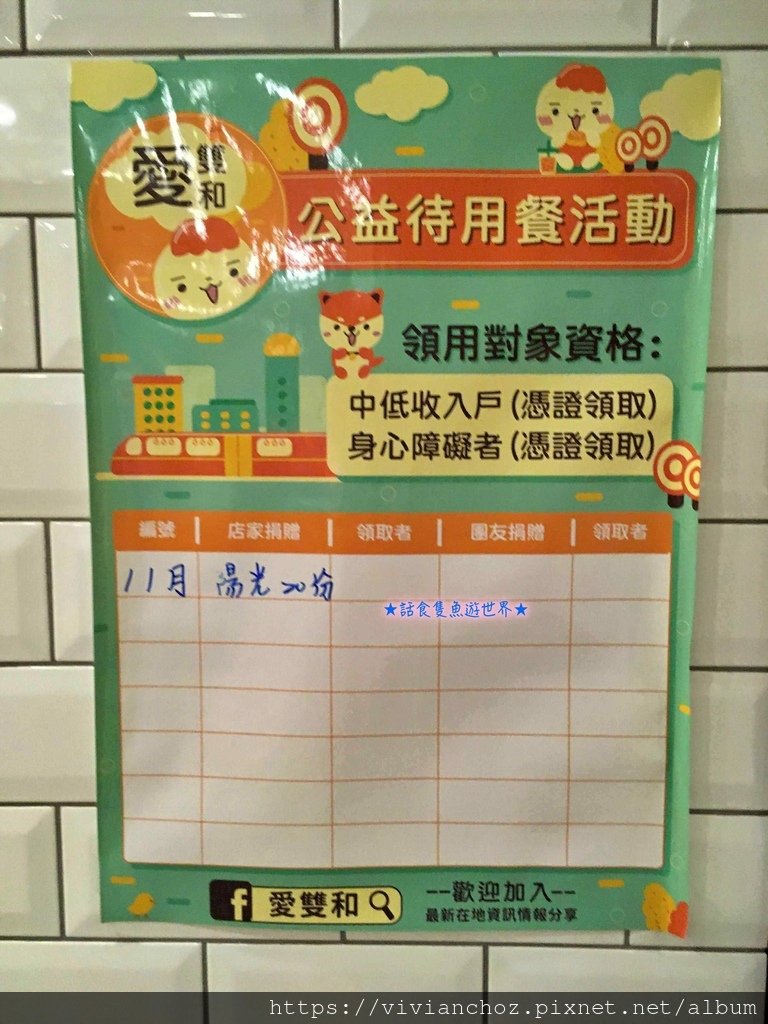 愛雙和
公益待用餐活動
領用對象資格:
中低收入戶(憑證領取)
身心障礙者(憑證領取)
編號 店家捐贈 領取者 團友捐贈 領取者
11月 陽光20份
★話食隻魚遊世界★
f 愛雙和
--歡迎加入--
最新在地資訊情報分享
https://vivianchoz.pixnet.net/album